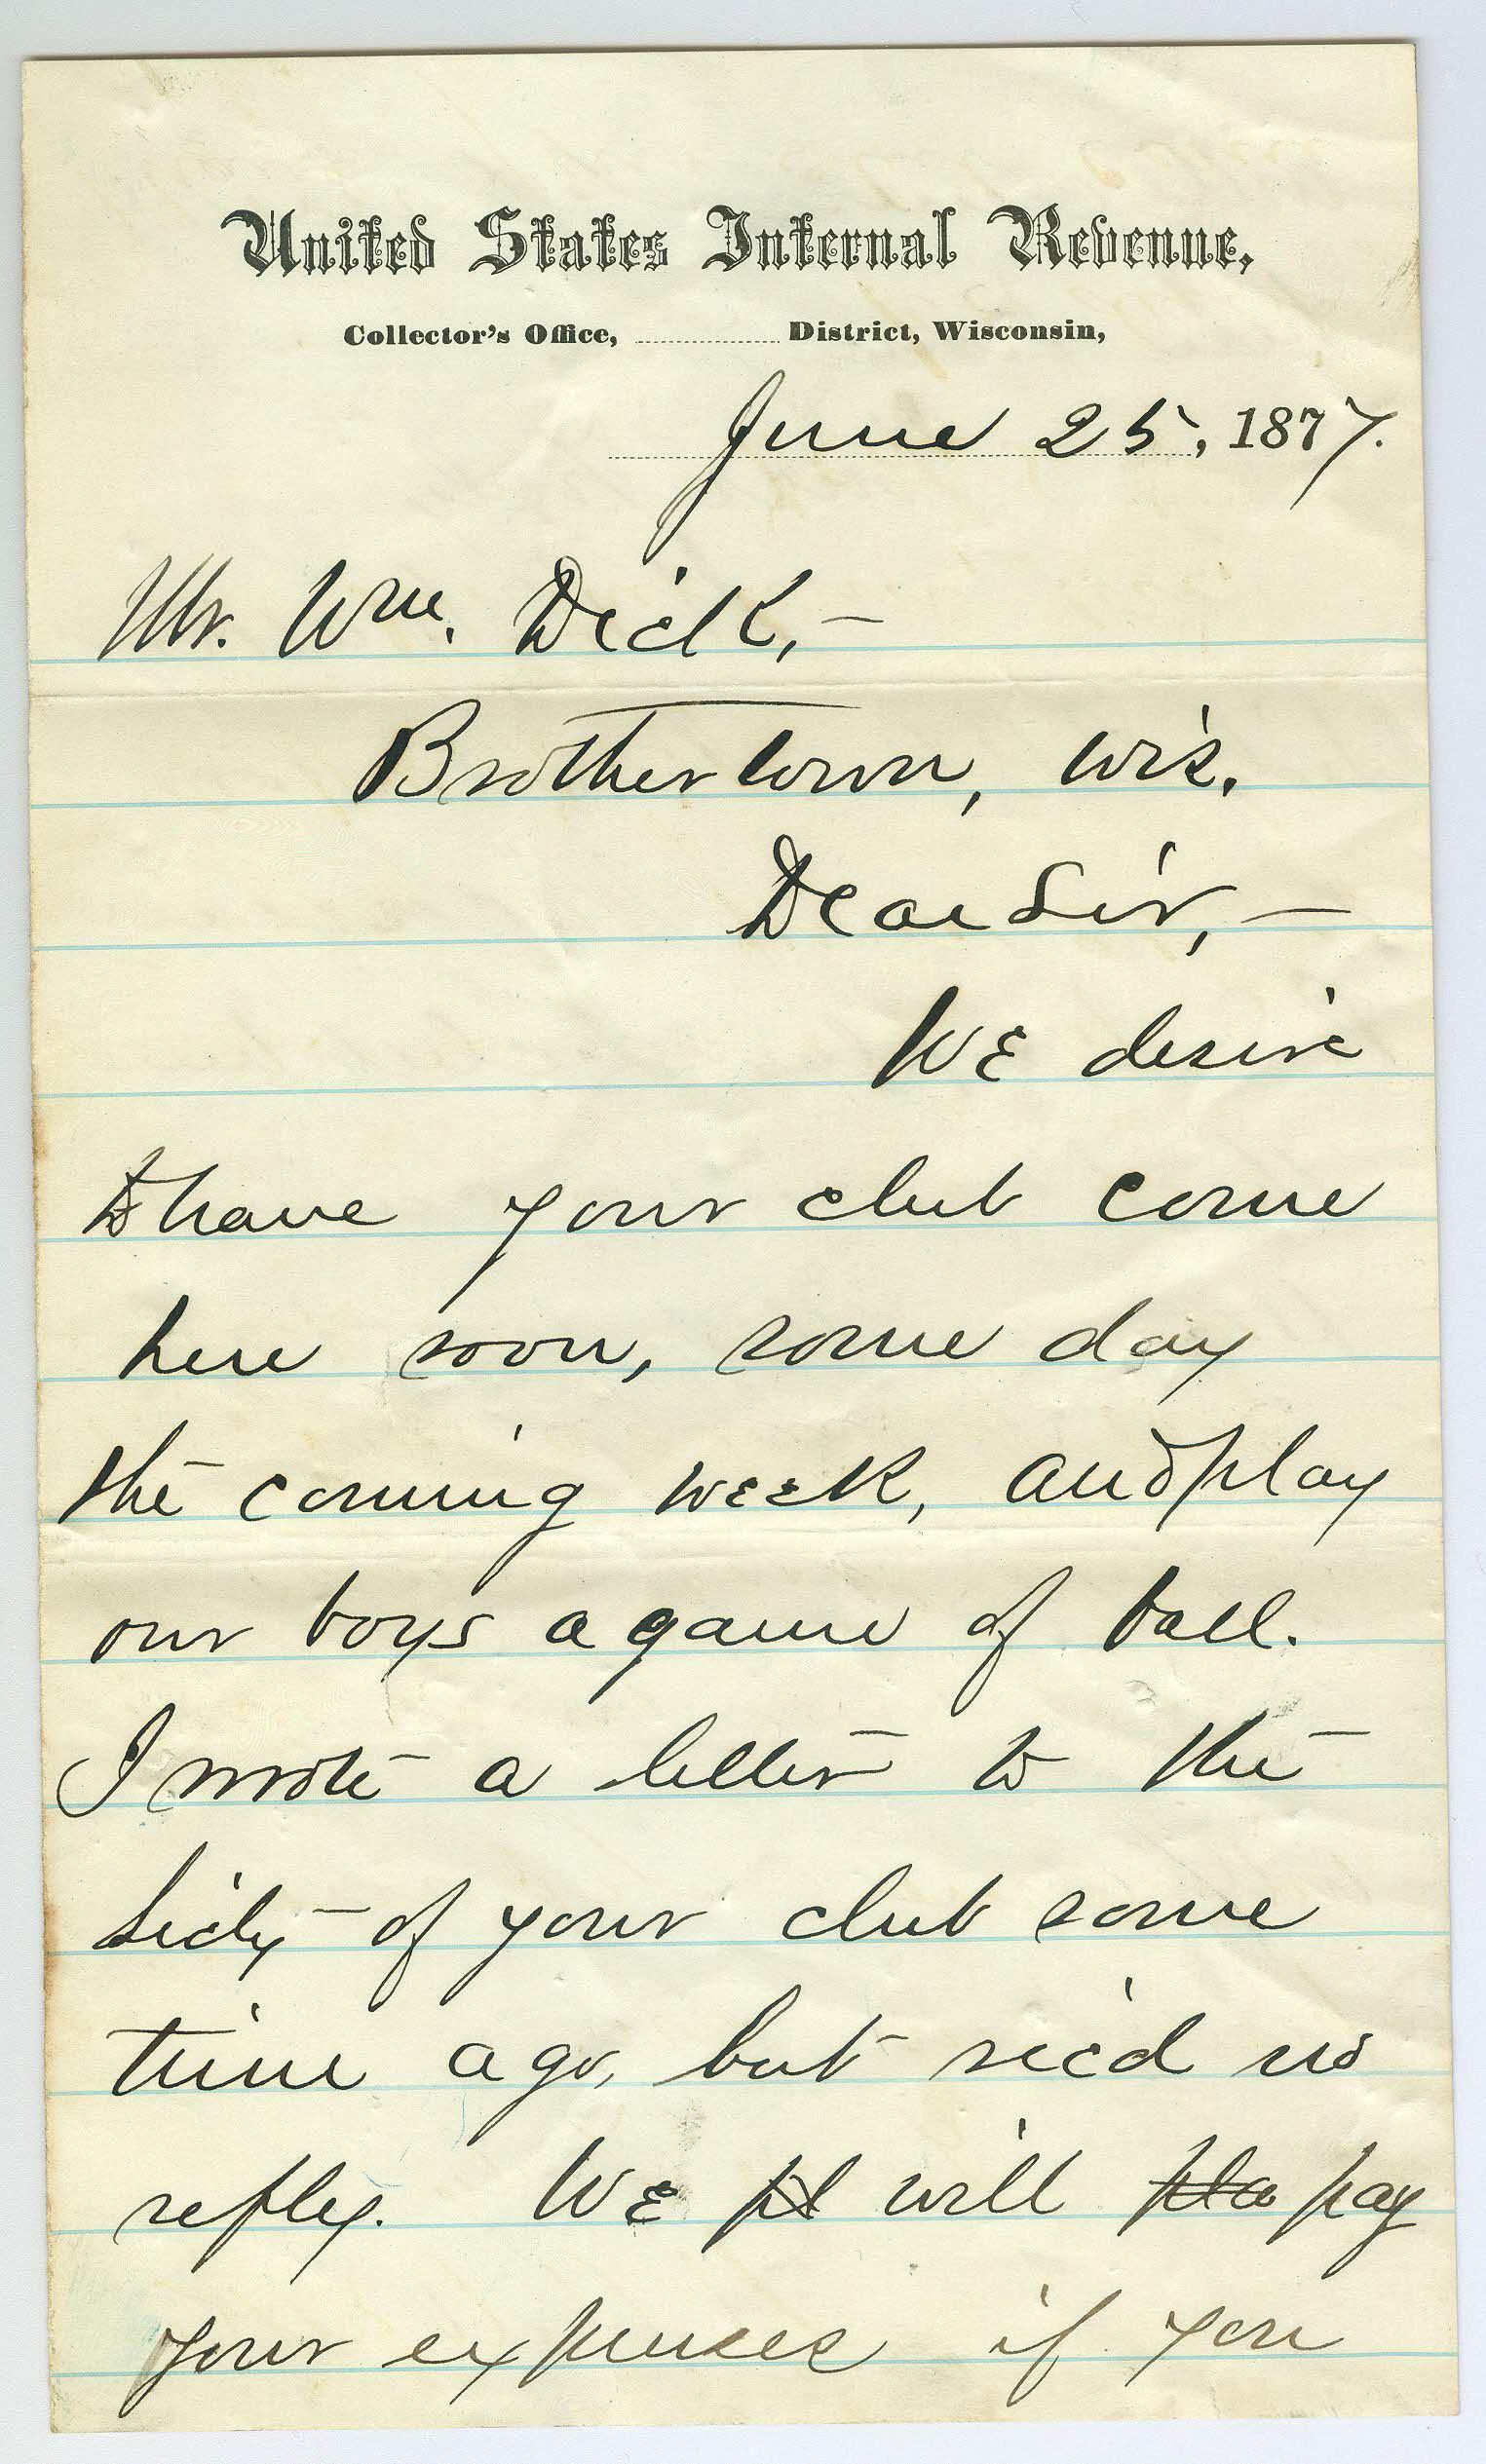 United States Internal Revenue,
Collector's Office, ............ District, Wisconsin,
June 25, 1877.
Mr. Wm. Dick,—
Brothertown, Wis.
Dear Sir,—
We desire
to have your club come
here soon, some day
the coming week, and play
our boys a game of ball.
I wrote a letter to the
Secty of your club some
time ago, but rec'd no
reply. We pl will pla pay
your expenses if you